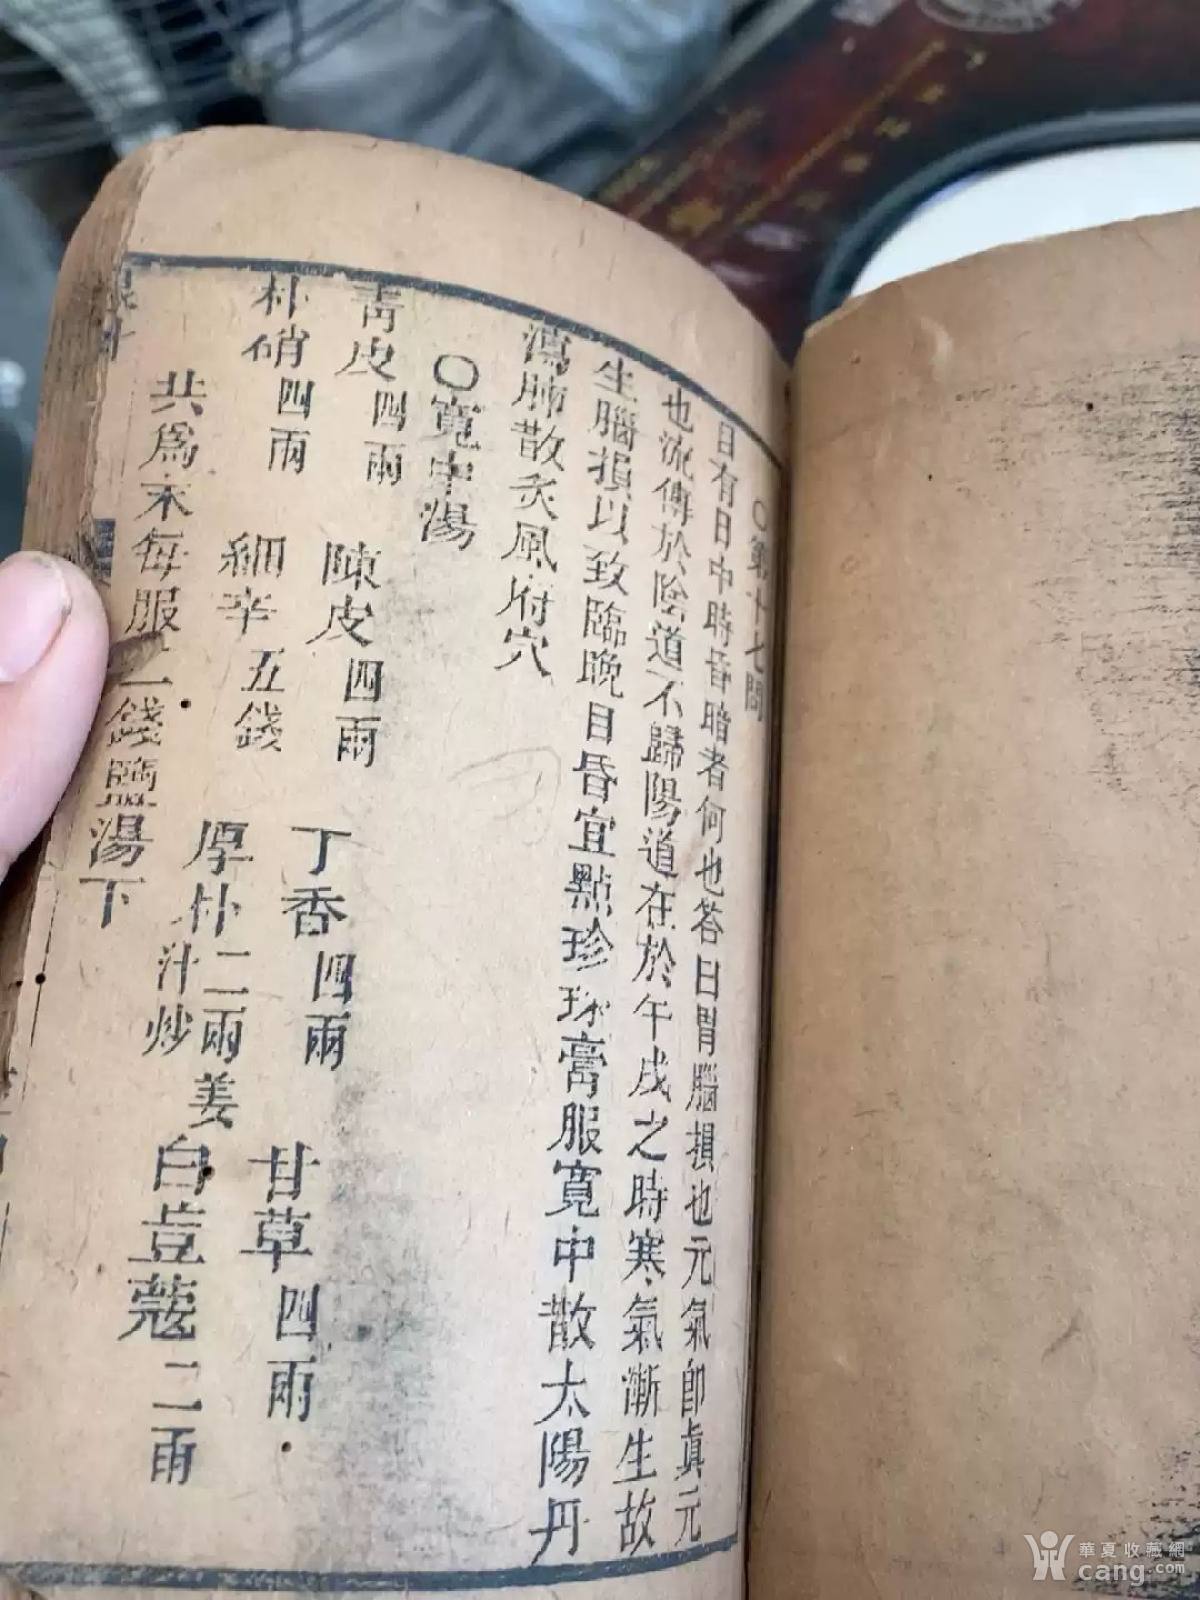 ○第十七問
目有日中時昏暗者何也答曰胃腦損也元氣卽眞元
也流傳於陰道不歸陽道在於午戌之時寒氣漸生故
生腦損以致臨晚目昏宜點珍珠膏服寬中散太陽丹
瀉肺散灸風府穴
○寬中湯
青皮四兩 陳皮四兩 丁香四兩 甘草四兩
朴硝四兩 細辛五錢 厚朴二兩姜汁炒 白荳蔻二兩
共爲末每服二錢鹽湯下
華夏收藏網
cang.com